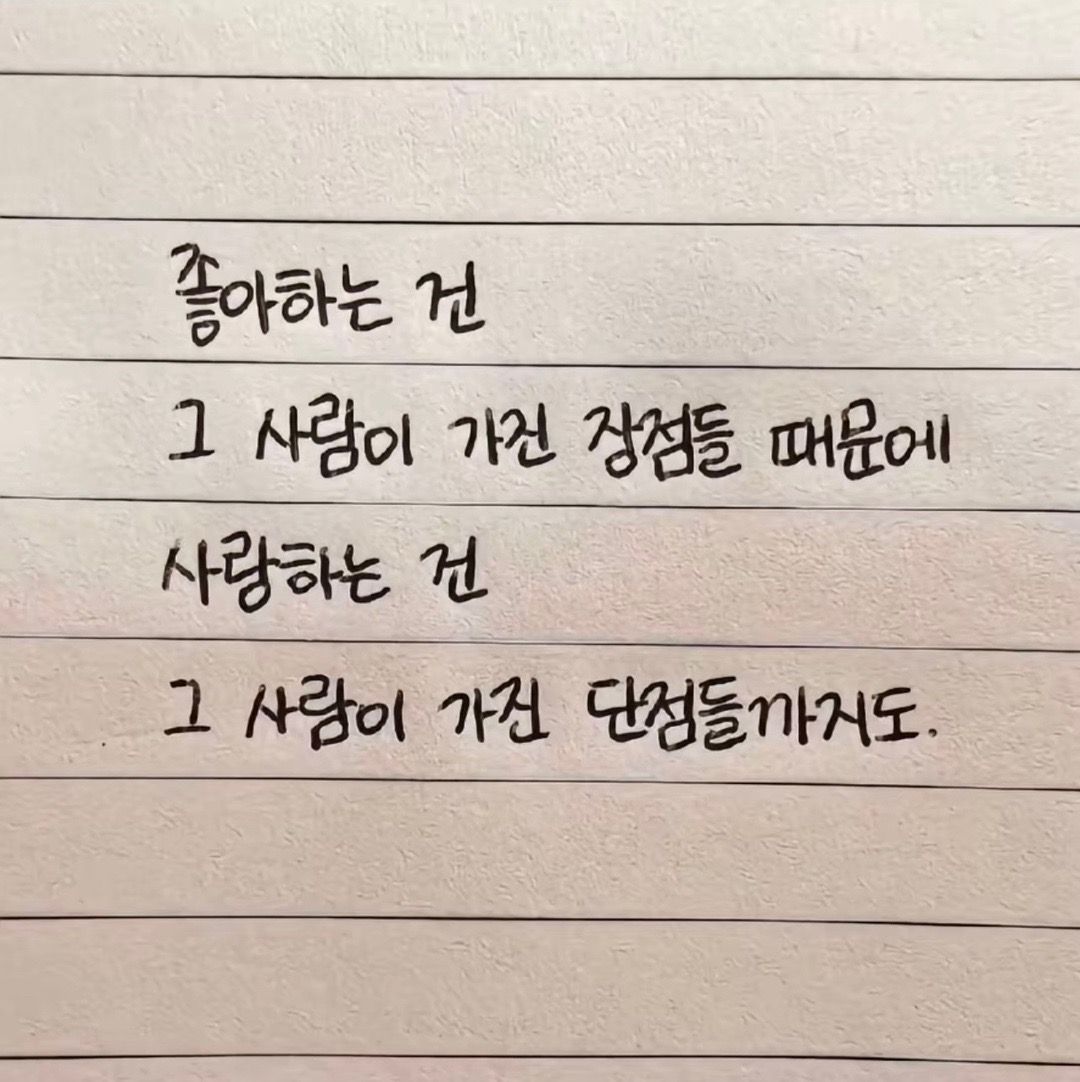 좋아하는 건
그 사람이 가진 장점들 때문에
사랑하는 건
그 사람이 가진 단점들까지도.